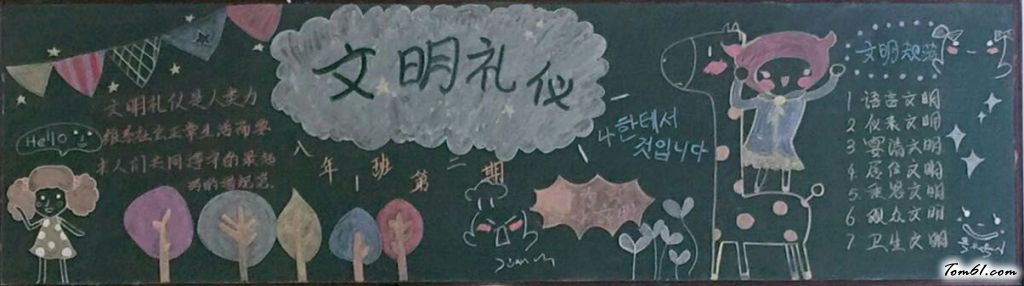 文明礼仪
文明礼仪是人类为
维系社会正常生活而要
求人们共同遵守的最起
码的道德规范
Hello
八年一班第二期
나한테서
것입니다
文明规范
1 语言文明
2 仪表文明
3 宴请文明
4 居住文明
5 走路文明
6 观众文明
7 卫生文明
Tom61.com